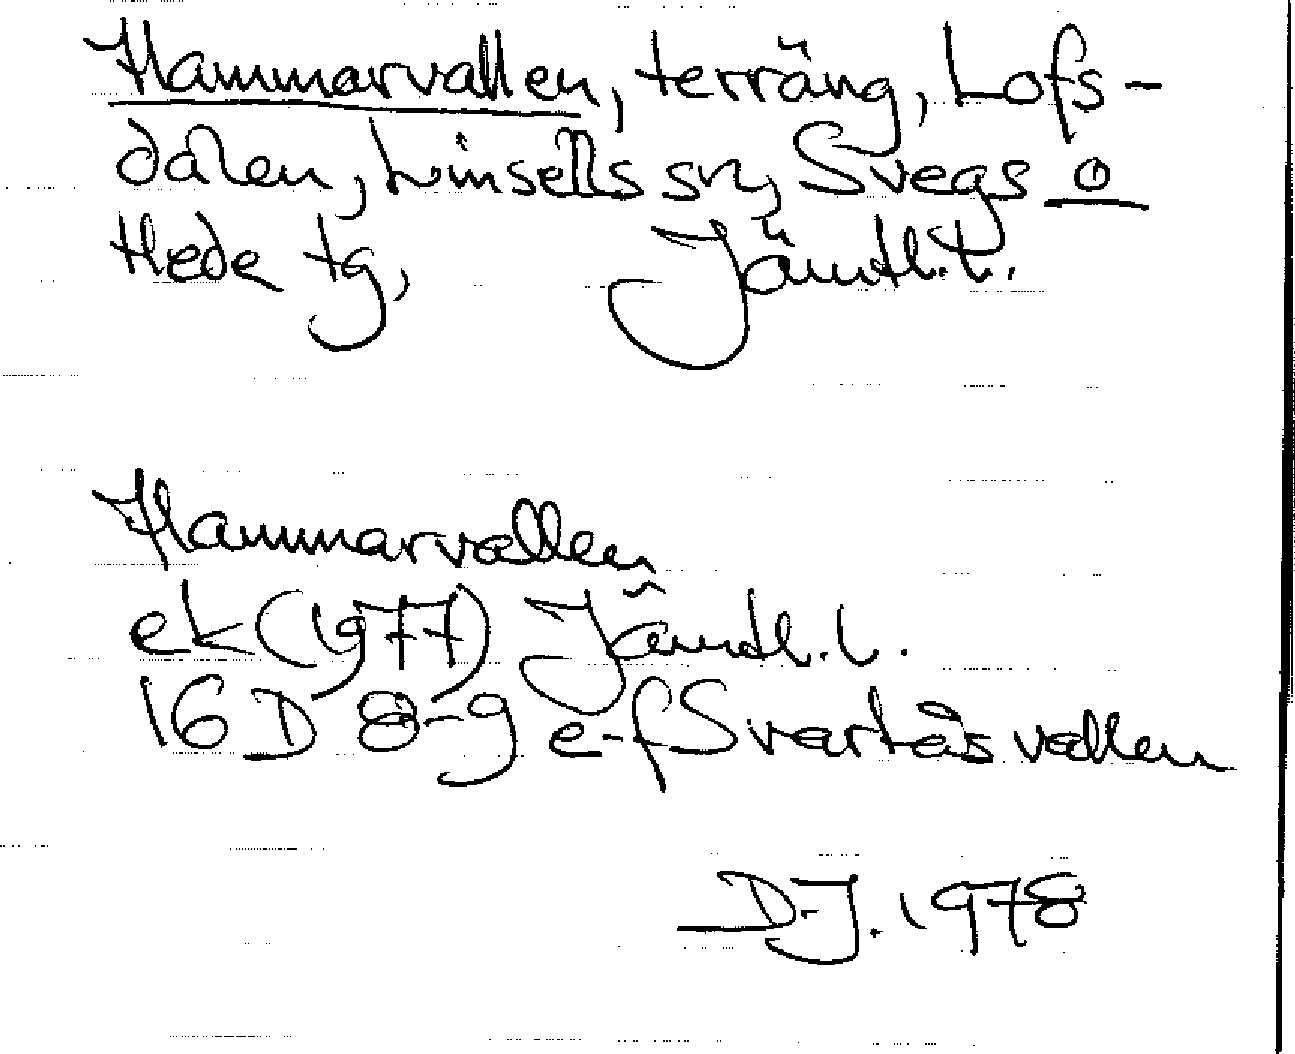 Hammarvallen, terräng, Lofs-
dalen, Linsells sn, Svegs o
Hede tg, Jämtl. l.
Hammarvallen
ek (1977) Jämtl. l.
16 D 8-9 e-f Svartåsvallen
D.J. 1978